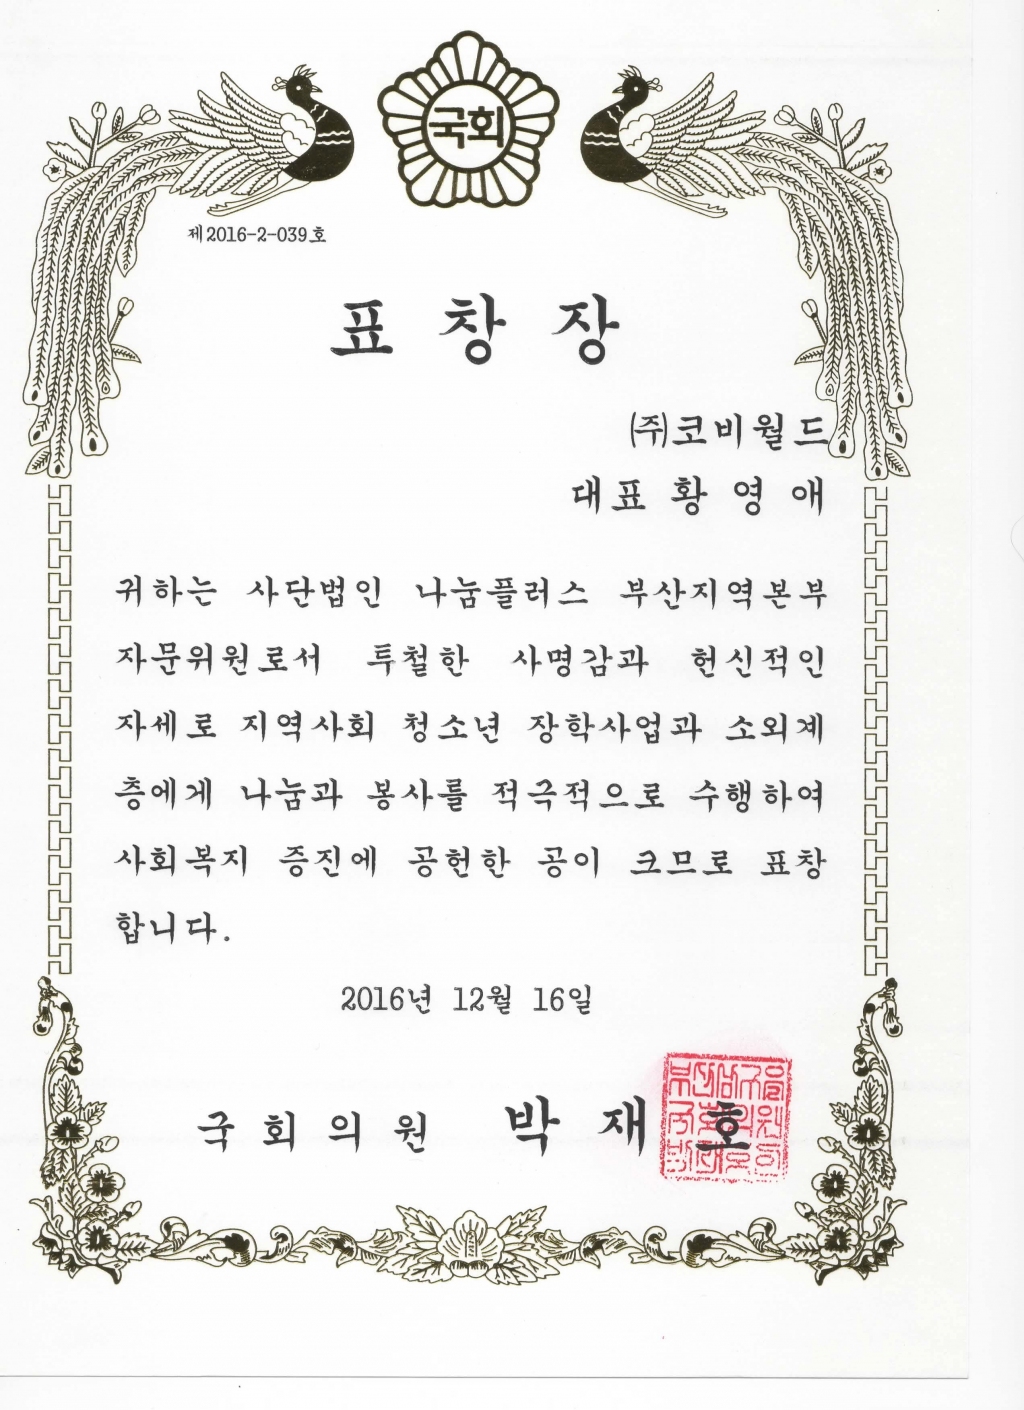 국회
제2016-2-039호
표창장
(주)코비월드
대표 황영애
귀하는 사단법인 나눔플러스 부산지역본부
자문위원로서 투철한 사명감과 헌신적인
자세로 지역사회 청소년 장학사업과 소외계
층에게 나눔과 봉사를 적극적으로 수행하여
사회복지 증진에 공헌한 공이 크므로 표창
합니다.
2016년 12월 16일
국회의원 박재호